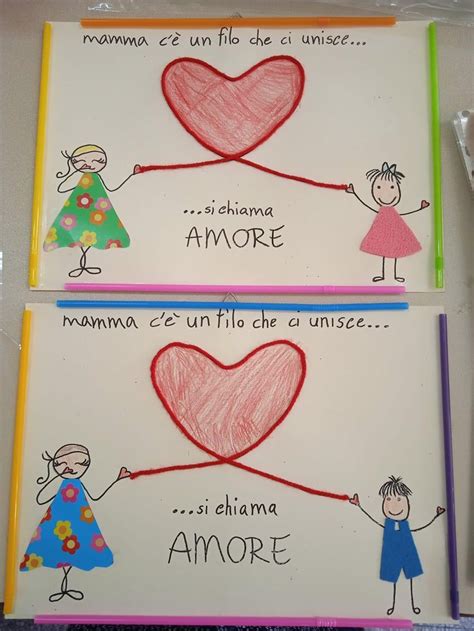 mamma c'è un filo che ci unisce...
...si chiama
AMORE
mamma c'è un filo che ci unisce...
...si chiama
AMORE